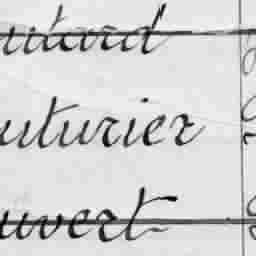 uitard
uturier
uvert